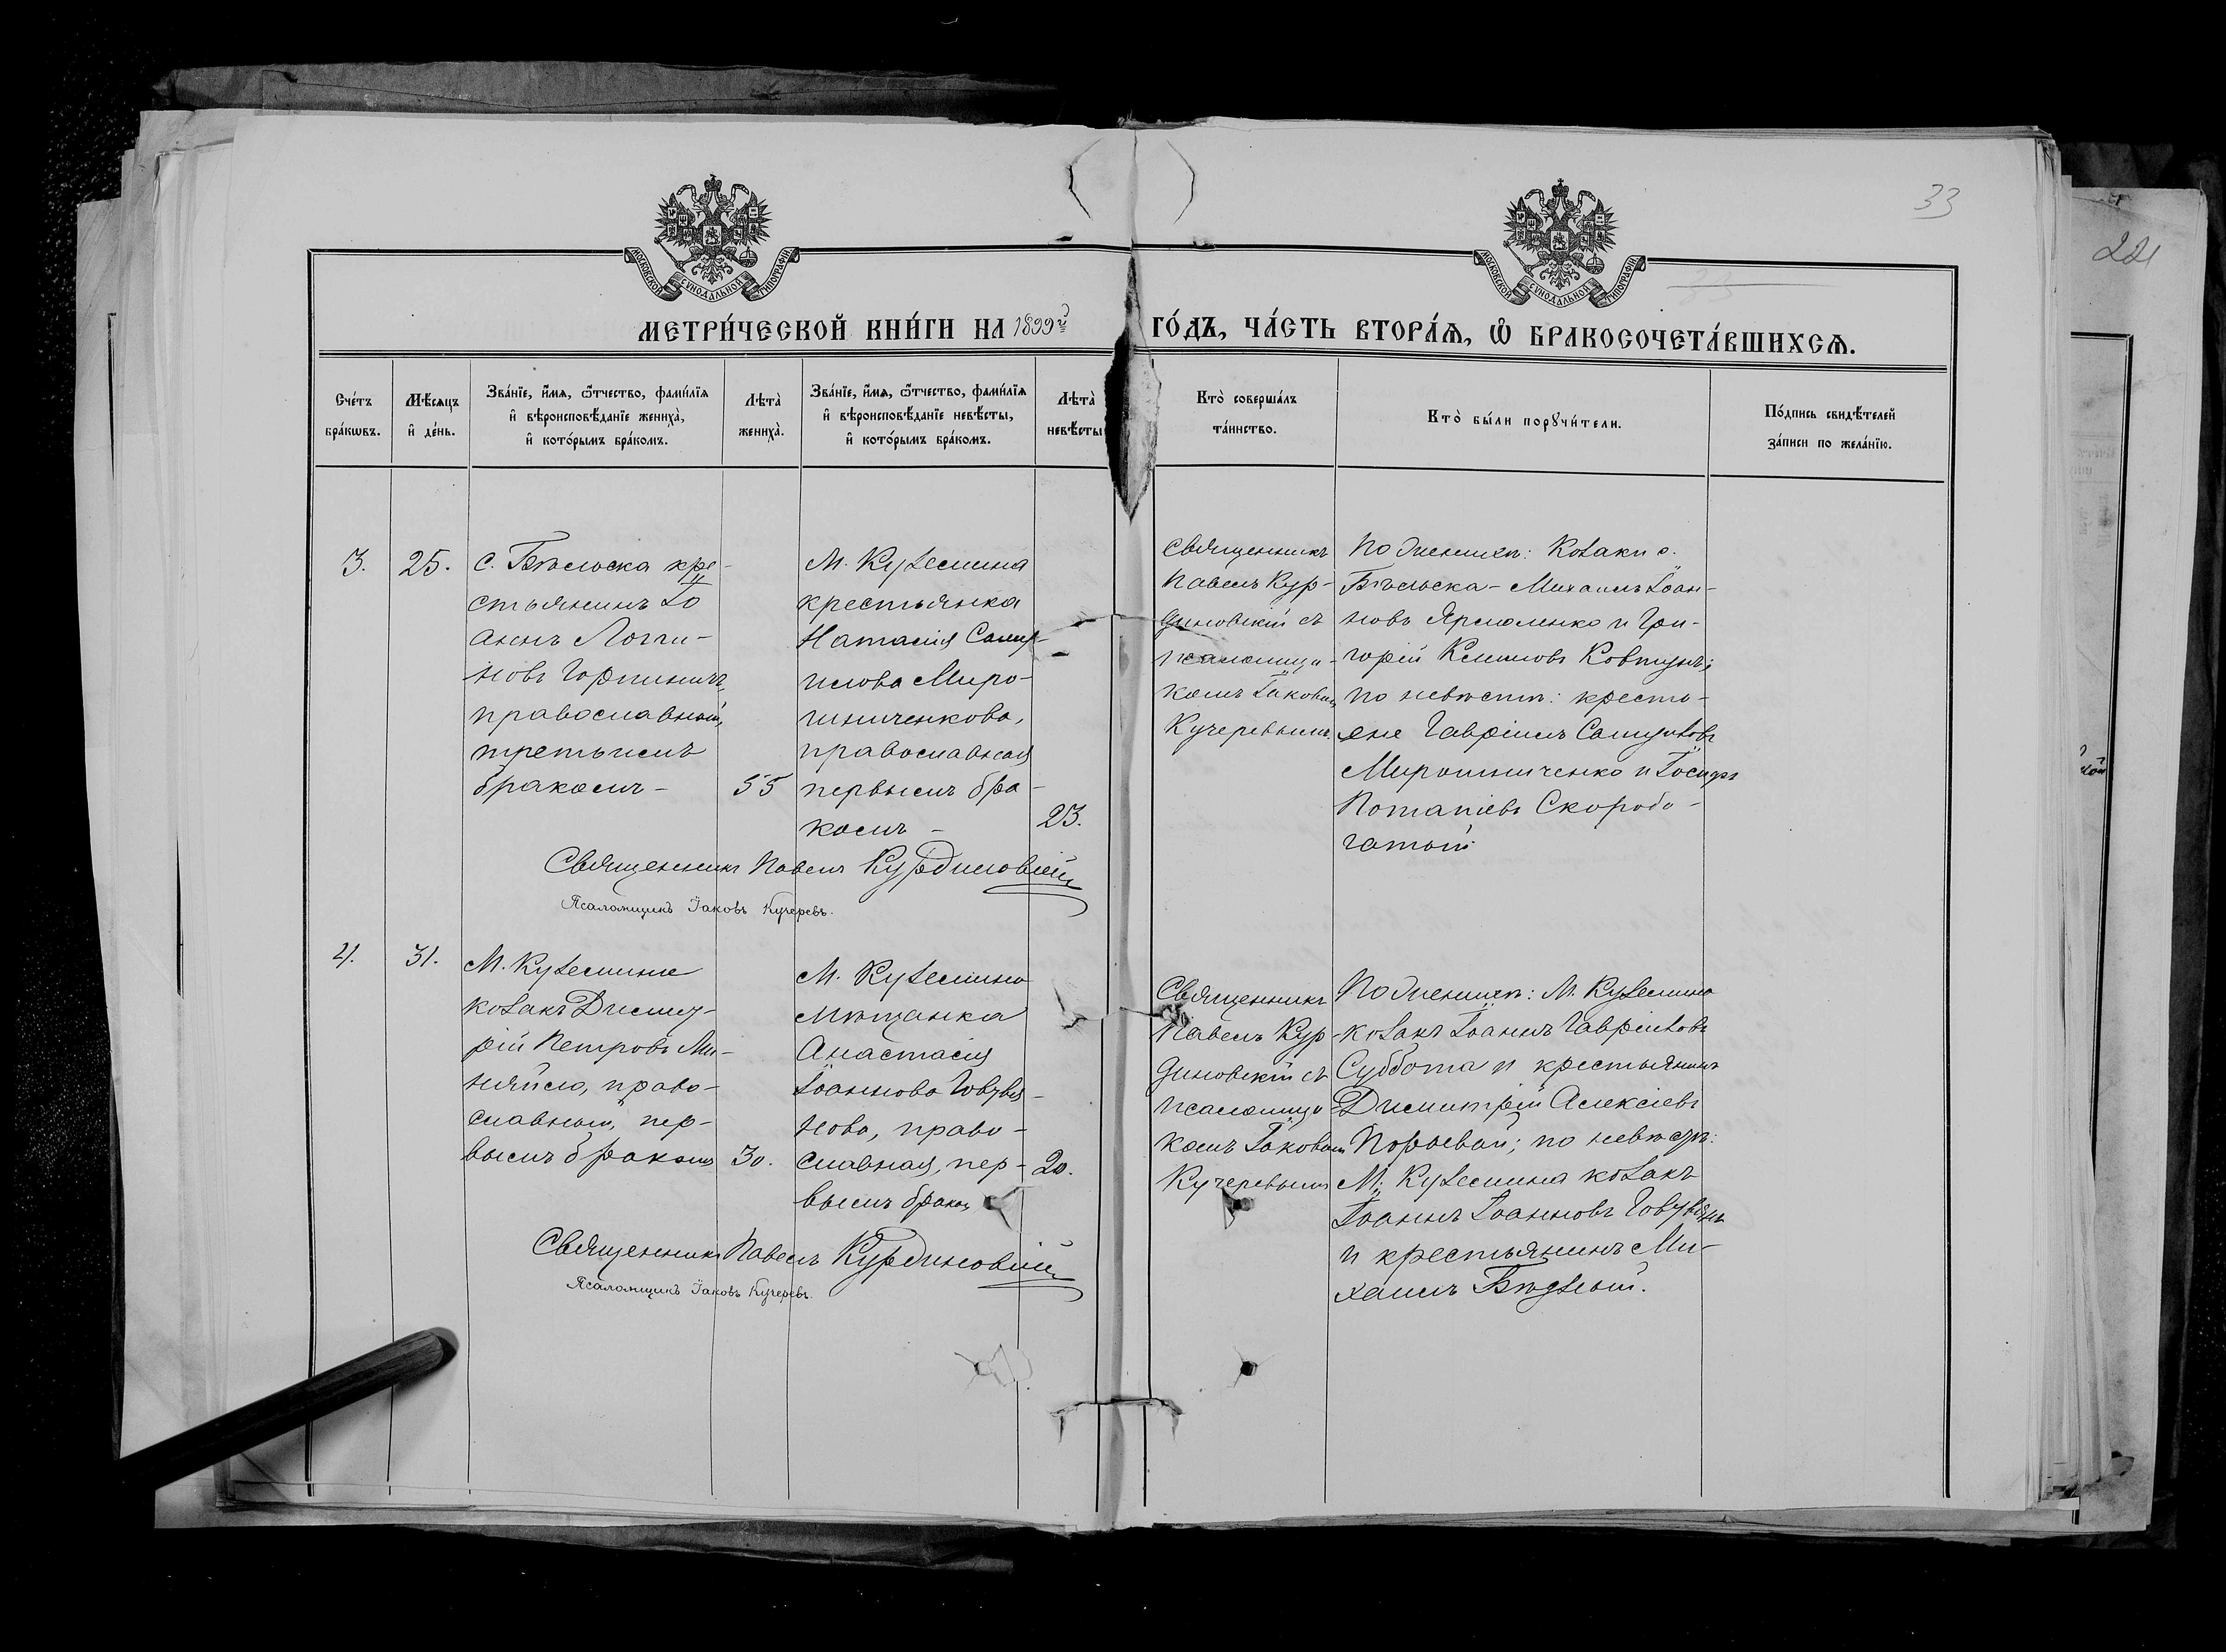 33
221
МОСКОВСКОЙ СѴНОДАЛЬНОЙ ТИПОГРАФІИ
МОСКОВСКОЙ СѴНОДАЛЬНОЙ ТИПОГРАФІИ
МЕТРИ́ЧЕСКОЙ КНИ́ГИ НА 1899й ГО́ДЪ, ЧА́СТЬ ВТОРА́Ѧ, Ѽ БРАКОСОЧЕТА́ВШИХСѦ.
Сче́тъ
бра́кѡвъ.
Мѣ́сяцъ
и҆ де́нь.
Зва́нїе, и҆́мѧ, ѻ҆́тчество, фами́лїѧ
и҆ вѣроисповѣ́данїе жениха̀,
и҆ кото́рымъ бра́комъ.
Лѣта̀
жениха̀.
Зва́нїе, и҆́мѧ, ѻ҆́тчество, фами́лїѧ
и҆ вѣроисповѣ́данїе невѣ́сты,
и҆ кото́рымъ бра́комъ.
Лѣта̀
невѣ́сты
Кто̀ соверша́лъ
та́инство.
Кто̀ бы́ли порꙋчи́тели.
По́дпись свидѣ́телей
за́писи по жела́нїю.
3.
25.
с. Бѣльска кре-
стьянинъ Іо
аннъ Логги-
новъ Горпиничъ,
православный,
третьимъ
бракомъ -
55
М. Куземина
крестьянка
Наталія Саму-
илова Миро-
шниченкова,
православная
первымъ бра-
комъ -
23.
Священникъ
Павелъ Кур-
диновскій съ
псаломщи-
комъ Іаковомъ
Кучеревымъ.
По женихѣ: Козаки с.
Бѣльска - Михаилъ Іоан-
новъ Ярмоленко и Гри-
горій Климовъ Ковтунъ;
по невѣстѣ: кресть-
яне Гавріилъ Самуиловъ
Мирошниченко и Іосифъ
Потапіевъ Скоробо-
гатый
Священникъ Павелъ Курдиновскій
Псаломщикъ Іаковъ Кучеревъ.
4.
31.
М. Куземина
козакъ Димит-
рій Петровъ Ми-
няйло, право-
славный, пер-
вымъ бракомъ
30.
М. Куземина
мѣщанка
Анастасія
Іоаннова
нова, право-
славная, пер-
вымъ бракомъ
20.
Священникъ
Павелъ Кур-
диновскій съ
псаломщи-
комъ Іаковомъ
Кучеревымъ
По женихѣ: М. Куземина
козакъ Іоаннъ Гавріиловъ
Суббота и крестьянинъ
Димитрій Алексіевъ
по невѣстѣ:
М. Куземина козакъ
Іоаннъ Іоанновъ
и крестьянинъ Ми-
хаилъ Бѣдный.
Священникъ Павелъ Курдиновскій
Псаломщикъ Іаковъ Кучеревъ.